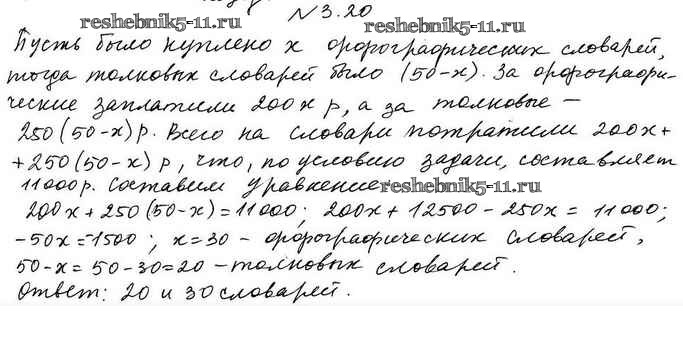 №3.20
reshebnik5-11.ru reshebnik5-11.ru
Пусть было куплено x орфографических словарей,
тогда толковых словарей было (50-x). За орфографи-
ческие заплатили 200x р, а за толковые –
250(50-x) р. Всего на словари потратили 200x+
+250(50-x) р, что, по условию задачи, составляет
11000р. Составим уравнение reshebnik5-11.ru
200x+250(50-x)=11000; 200x+12500-250x= 11000;
-50x=-1500; x=30 - орфографических словарей,
50-x=50-30=20 -толковых словарей.
Ответ: 20 и 30 словарей.